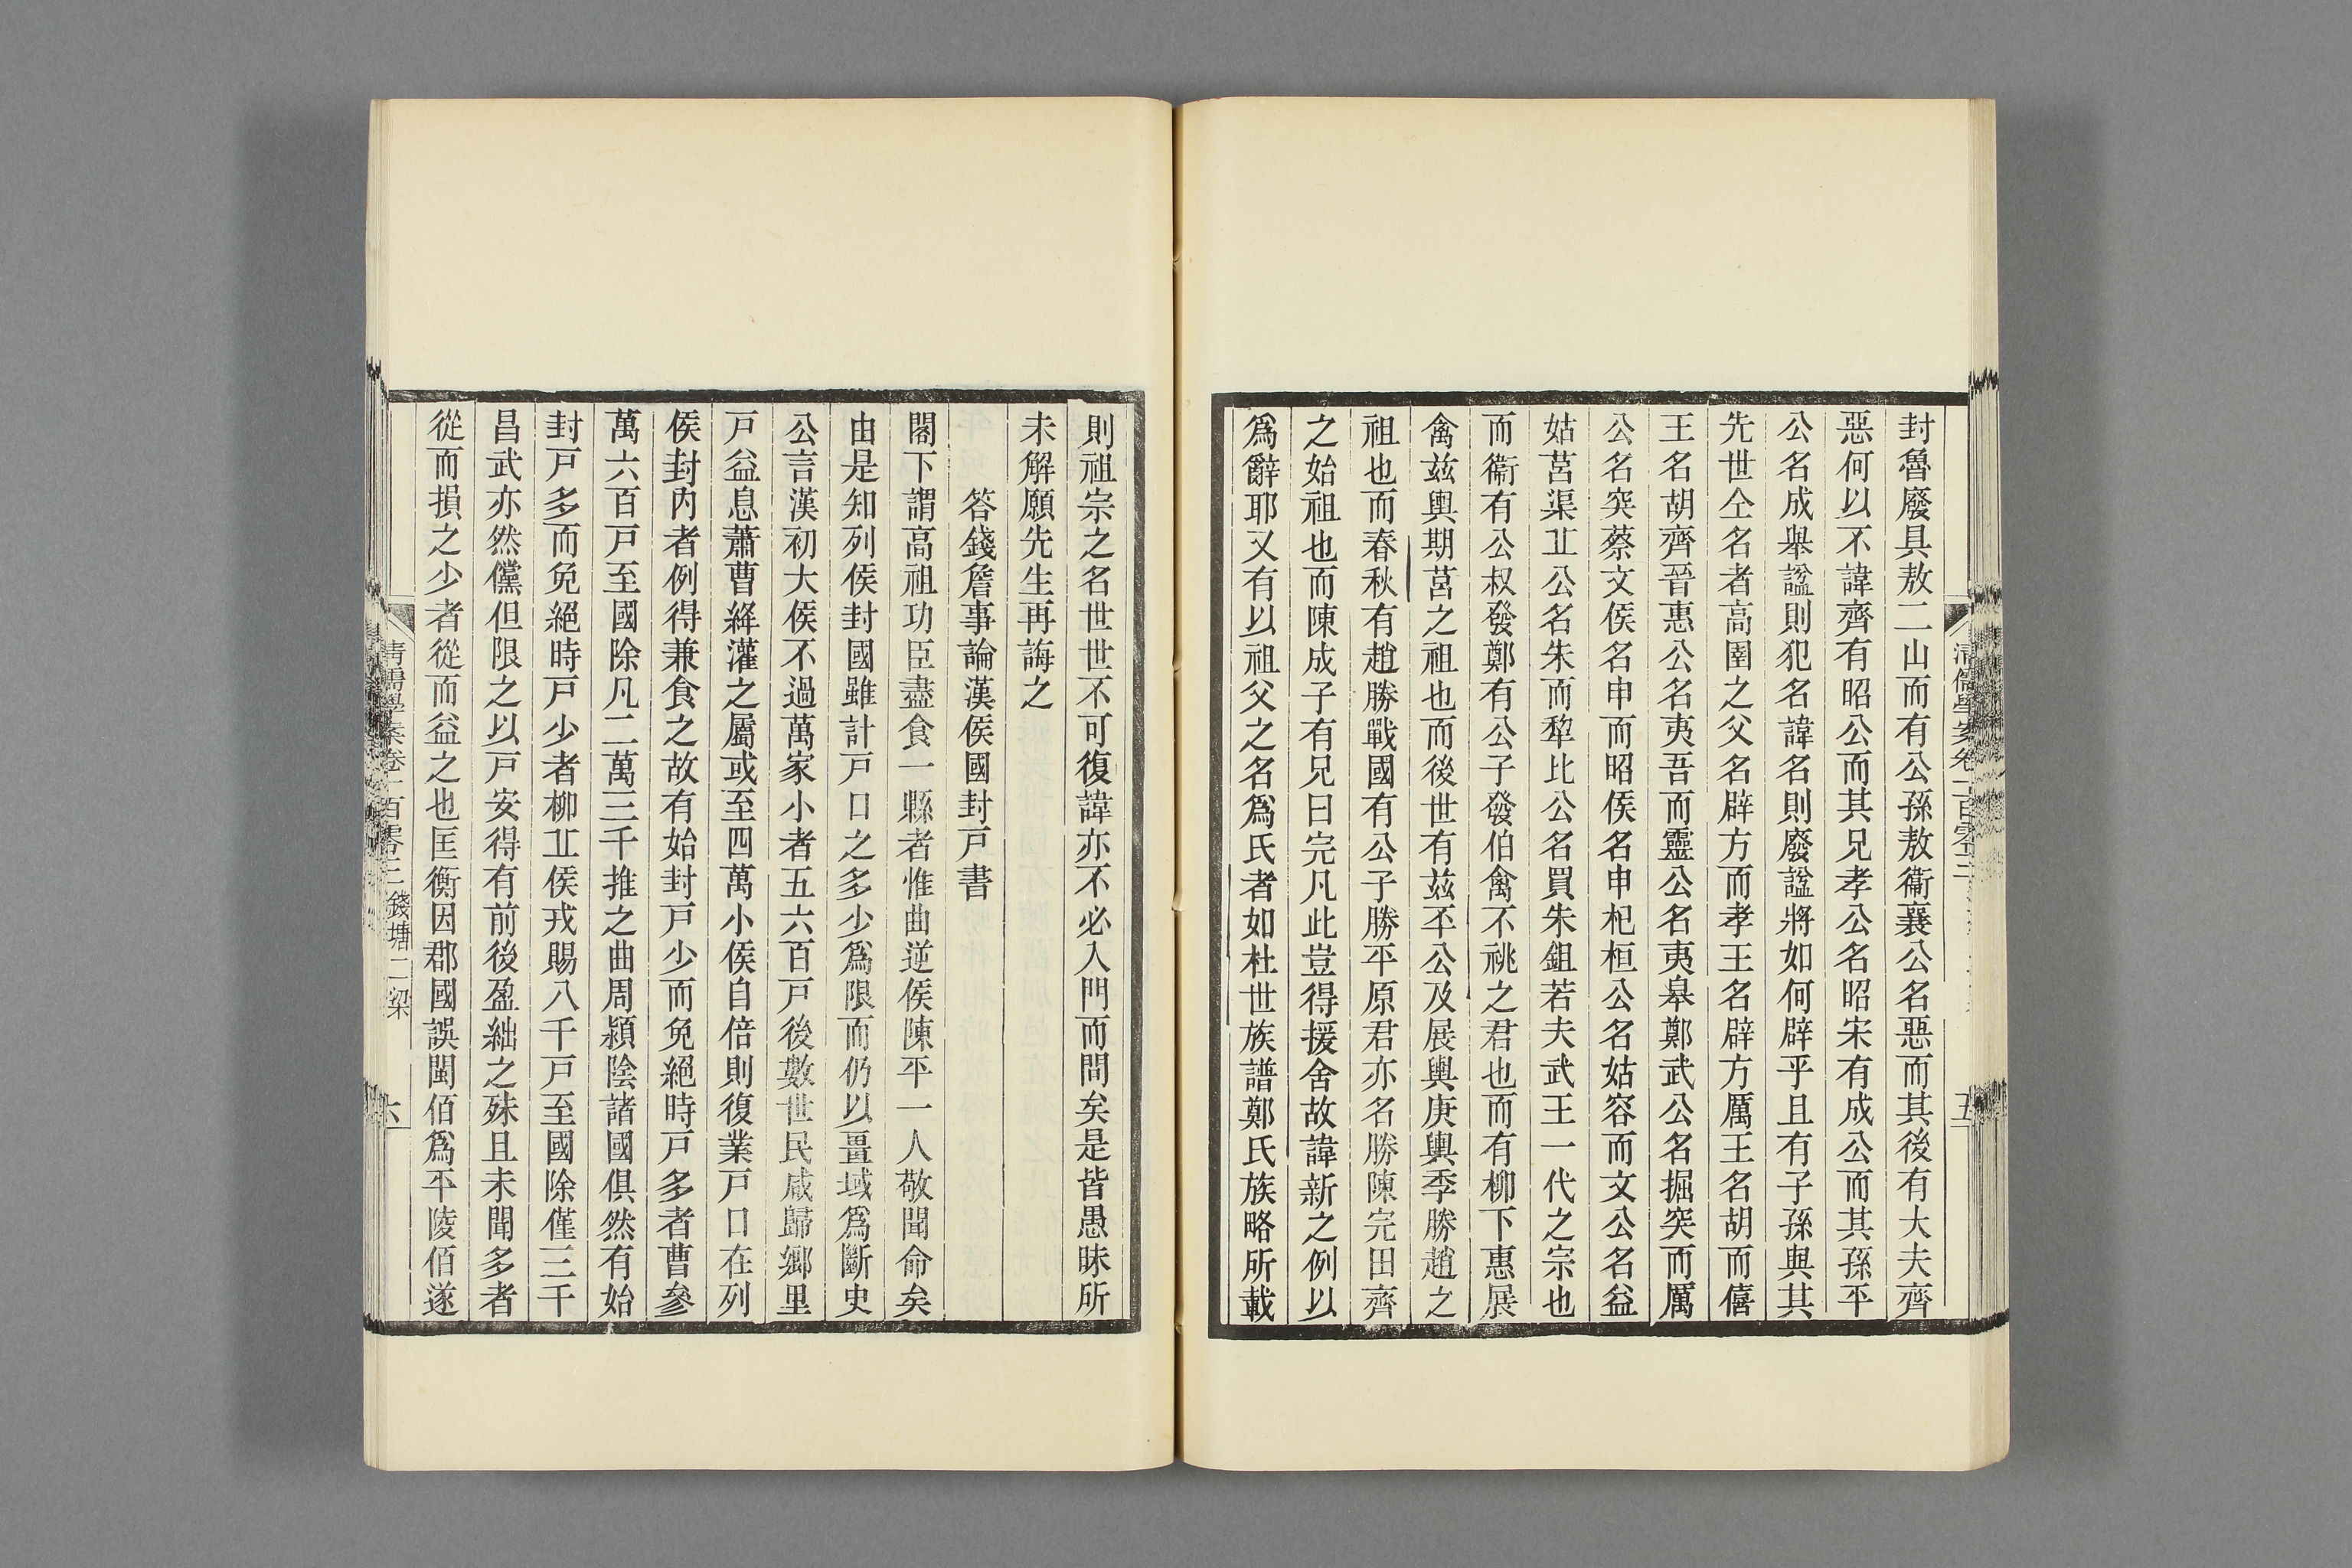 封魯廢具敖二山而有公孫敖衞襄公名惡而其後有大夫齊
惡何以不諱齊有昭公而其兄孝公名昭宋有成公而其孫平
公名成舉諡則犯名諱名則廢諡將如何辟乎且有子孫與其
先世仝名者高圉之父名辟方而孝王名辟方厲王名胡而僖
王名胡齊晉惠公名夷吾而靈公名夷皋鄭武公名掘突而厲
公名突蔡文侯名申而昭侯名申杞桓公名姑容而文公名益
姑莒渠丠公名朱而犂比公名買朱鉏若夫武王一代之宗也
而衞有公叔發鄭有公子發伯禽不祧之君也而有柳下惠展
禽兹輿期莒之祖也而後世有兹㔻公及展輿庚輿季勝趙之
祖也而春秋有趙勝戰國有公子勝平原君亦名勝陳完田齊
之始祖也而陳成子有兄曰完凡此豈得援舍故諱新之例以
爲辭耶又有以祖父之名爲氏者如杜世族譜鄭氏族略所載
清儒學案卷二百零三
五
則祖宗之名世世不可復諱亦不必入門而問矣是皆愚昧所
未解願先生再誨之
答錢詹事論漢侯國封戸書
閣下謂高祖功臣盡食一縣者惟曲逆侯陳平一人敬聞命矣
由是知列侯封國雖計戸口之多少爲限而仍以畺域爲斷史
公言漢初大侯不過萬家小者五六百戸後數世民咸歸鄉里
戸益息蕭曹絳灌之屬或至四萬小侯自倍則復業戸口在列
侯封內者例得兼食之故有始封戸少而免絕時戸多者曹參
萬六百戸至國除凡二萬三千推之曲周潁陰諸國俱然有始
封戸多而免絕時戸少者柳丠侯戎賜八千戸至國除僅三千
昌武亦然儻但限之以戸安得有前後盈絀之殊且未聞多者
從而損之少者從而益之也匡衡因郡國誤閩佰爲平陵佰遂
清儒學案卷二百零三 錢塘二梁
六